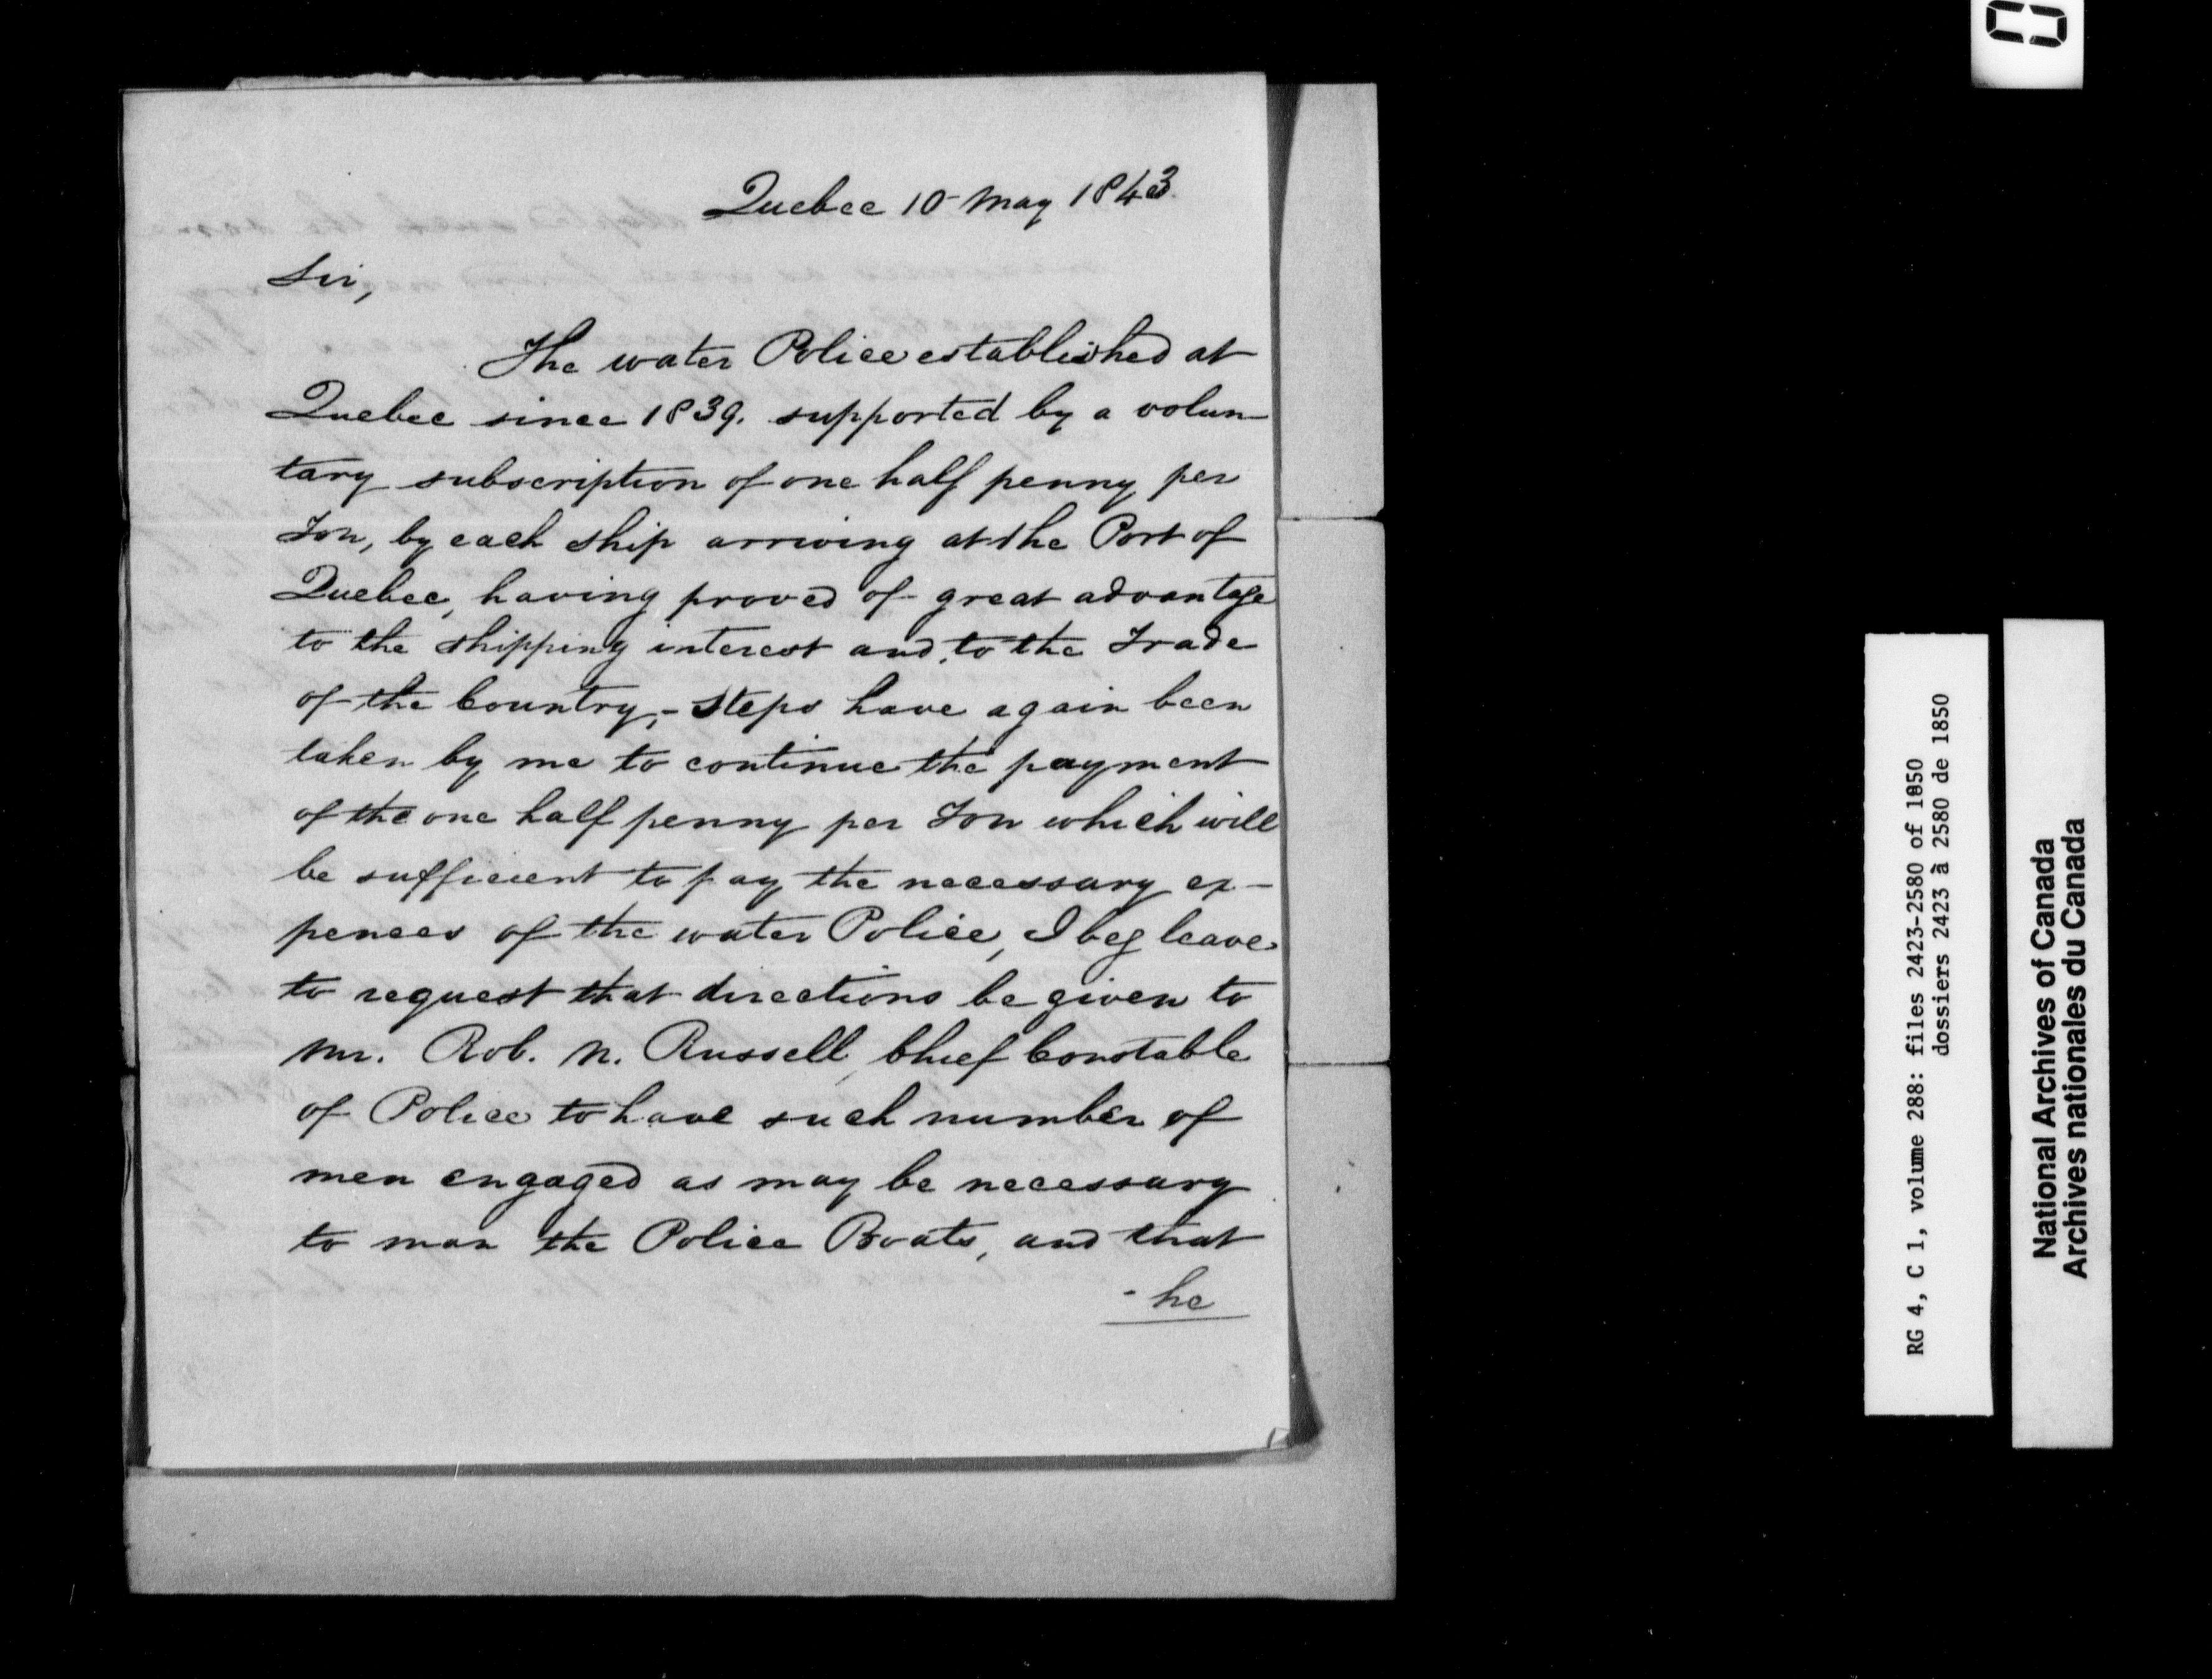 Quebec 10 May 1843.
Sir,
The water Police established at
Quebec since 1839. supported by a volun-
tary subscription of one half penny per
Ton, by each ship arriving at the Port of
Quebec, having proved of great advantage
to the shipping interest and to the Trade
of the Country,- Steps have again been
taken by me to continue the payment
of the one half penny per Ton which will
be sufficient to pay the necessary ex-
pences of the water Police, I beg leave
to request that directions be given to
Mr. Rob. N. Russell, Chief Constable
of Police to have such number of
men engaged as may be necessary
to man the Police Boats, and that
- he
RG 4, C 1, volume 288: files 2423-2580 of 1850
dossiers 2423 à 2580 de 1850
National Archives of Canada
Archives nationales du Canada